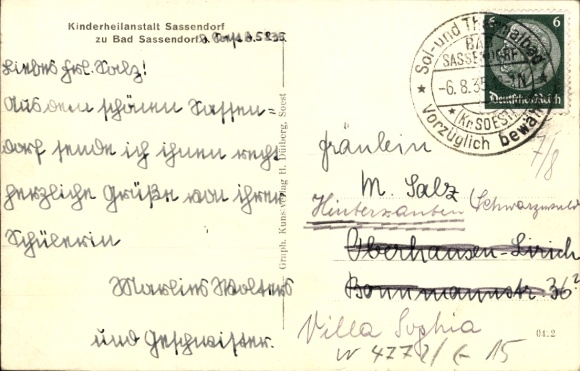 Kinderheilanstalt Sassendorf
zu Bad Sassendorf
Liebes Frl. Salz!
Aus dem schönen Sassen=
dorf sende ich ihnen recht
herzliche Grüße von ihrer
Schülerin
Marlies Wolters
und Geschwister.
Graph. Kunstverlag H. Dülberg, Soest
Sol- und Thermalbad
BAD
SASSENDORF
-6.8.35
(Kr. SOEST)
Vorzüglich bewährt
6 6
Deutsches Reich
7/8
Fräulein
M. Salz
Hinterzarten (Schwarzwald
Oberhausen-Lirich
Bonnmannstr. 36?
Villa Sophia